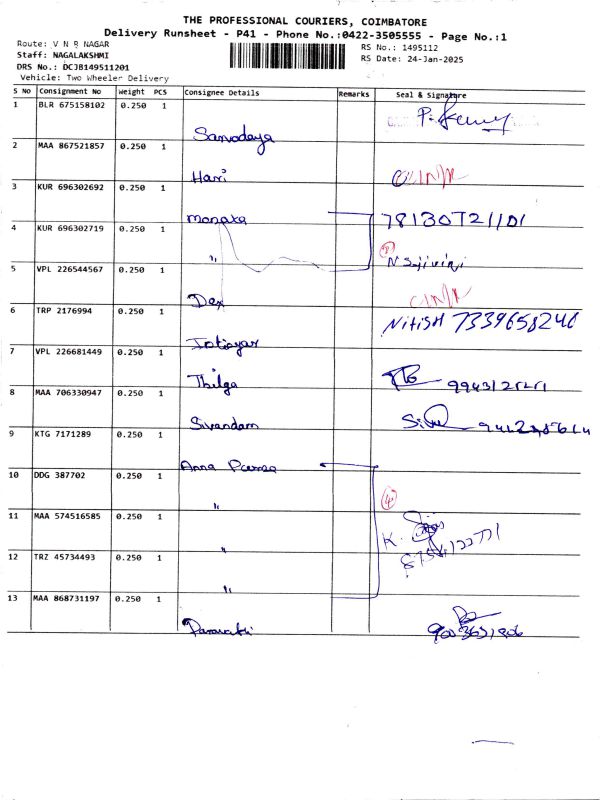 THE PROFESSIONAL COURIERS, COIMBATORE
Delivery Runsheet - P41 - Phone No.:0422-3505555 - Page No.:1
Route: V N R NAGAR
RS No.: 1495112
Staff: NAGALAKSHMI
RS Date: 24-Jan-2025
DRS No.: DCJB149511201
Vehicle: Two Wheeler Delivery
S No Consignment No Weight PCS Consignee Details Remarks Seal & Signature
1 BLR 675158102 0.250 1
Sarvodaya
2 MAA 867521857 0.250 1
Hari
3 KUR 696302692 0.250 1
78130721101
4 KUR 696302719 0.250 1
"
5 VPL 226544567 0.250 1
Dex
6 TRP 2176994 0.250 1 Nitish 7339658246
7 VPL 226681449 0.250 1
Thilga
8 MAA 706330947 0.250 1
Sivandam
9 KTG 7171289 0.250 1
Anna
10 DDG 387702 0.250 1
"
11 MAA 574516585 0.250 1
"
12 TRZ 45734493 0.250 1
"
13 MAA 868731197 0.250 1